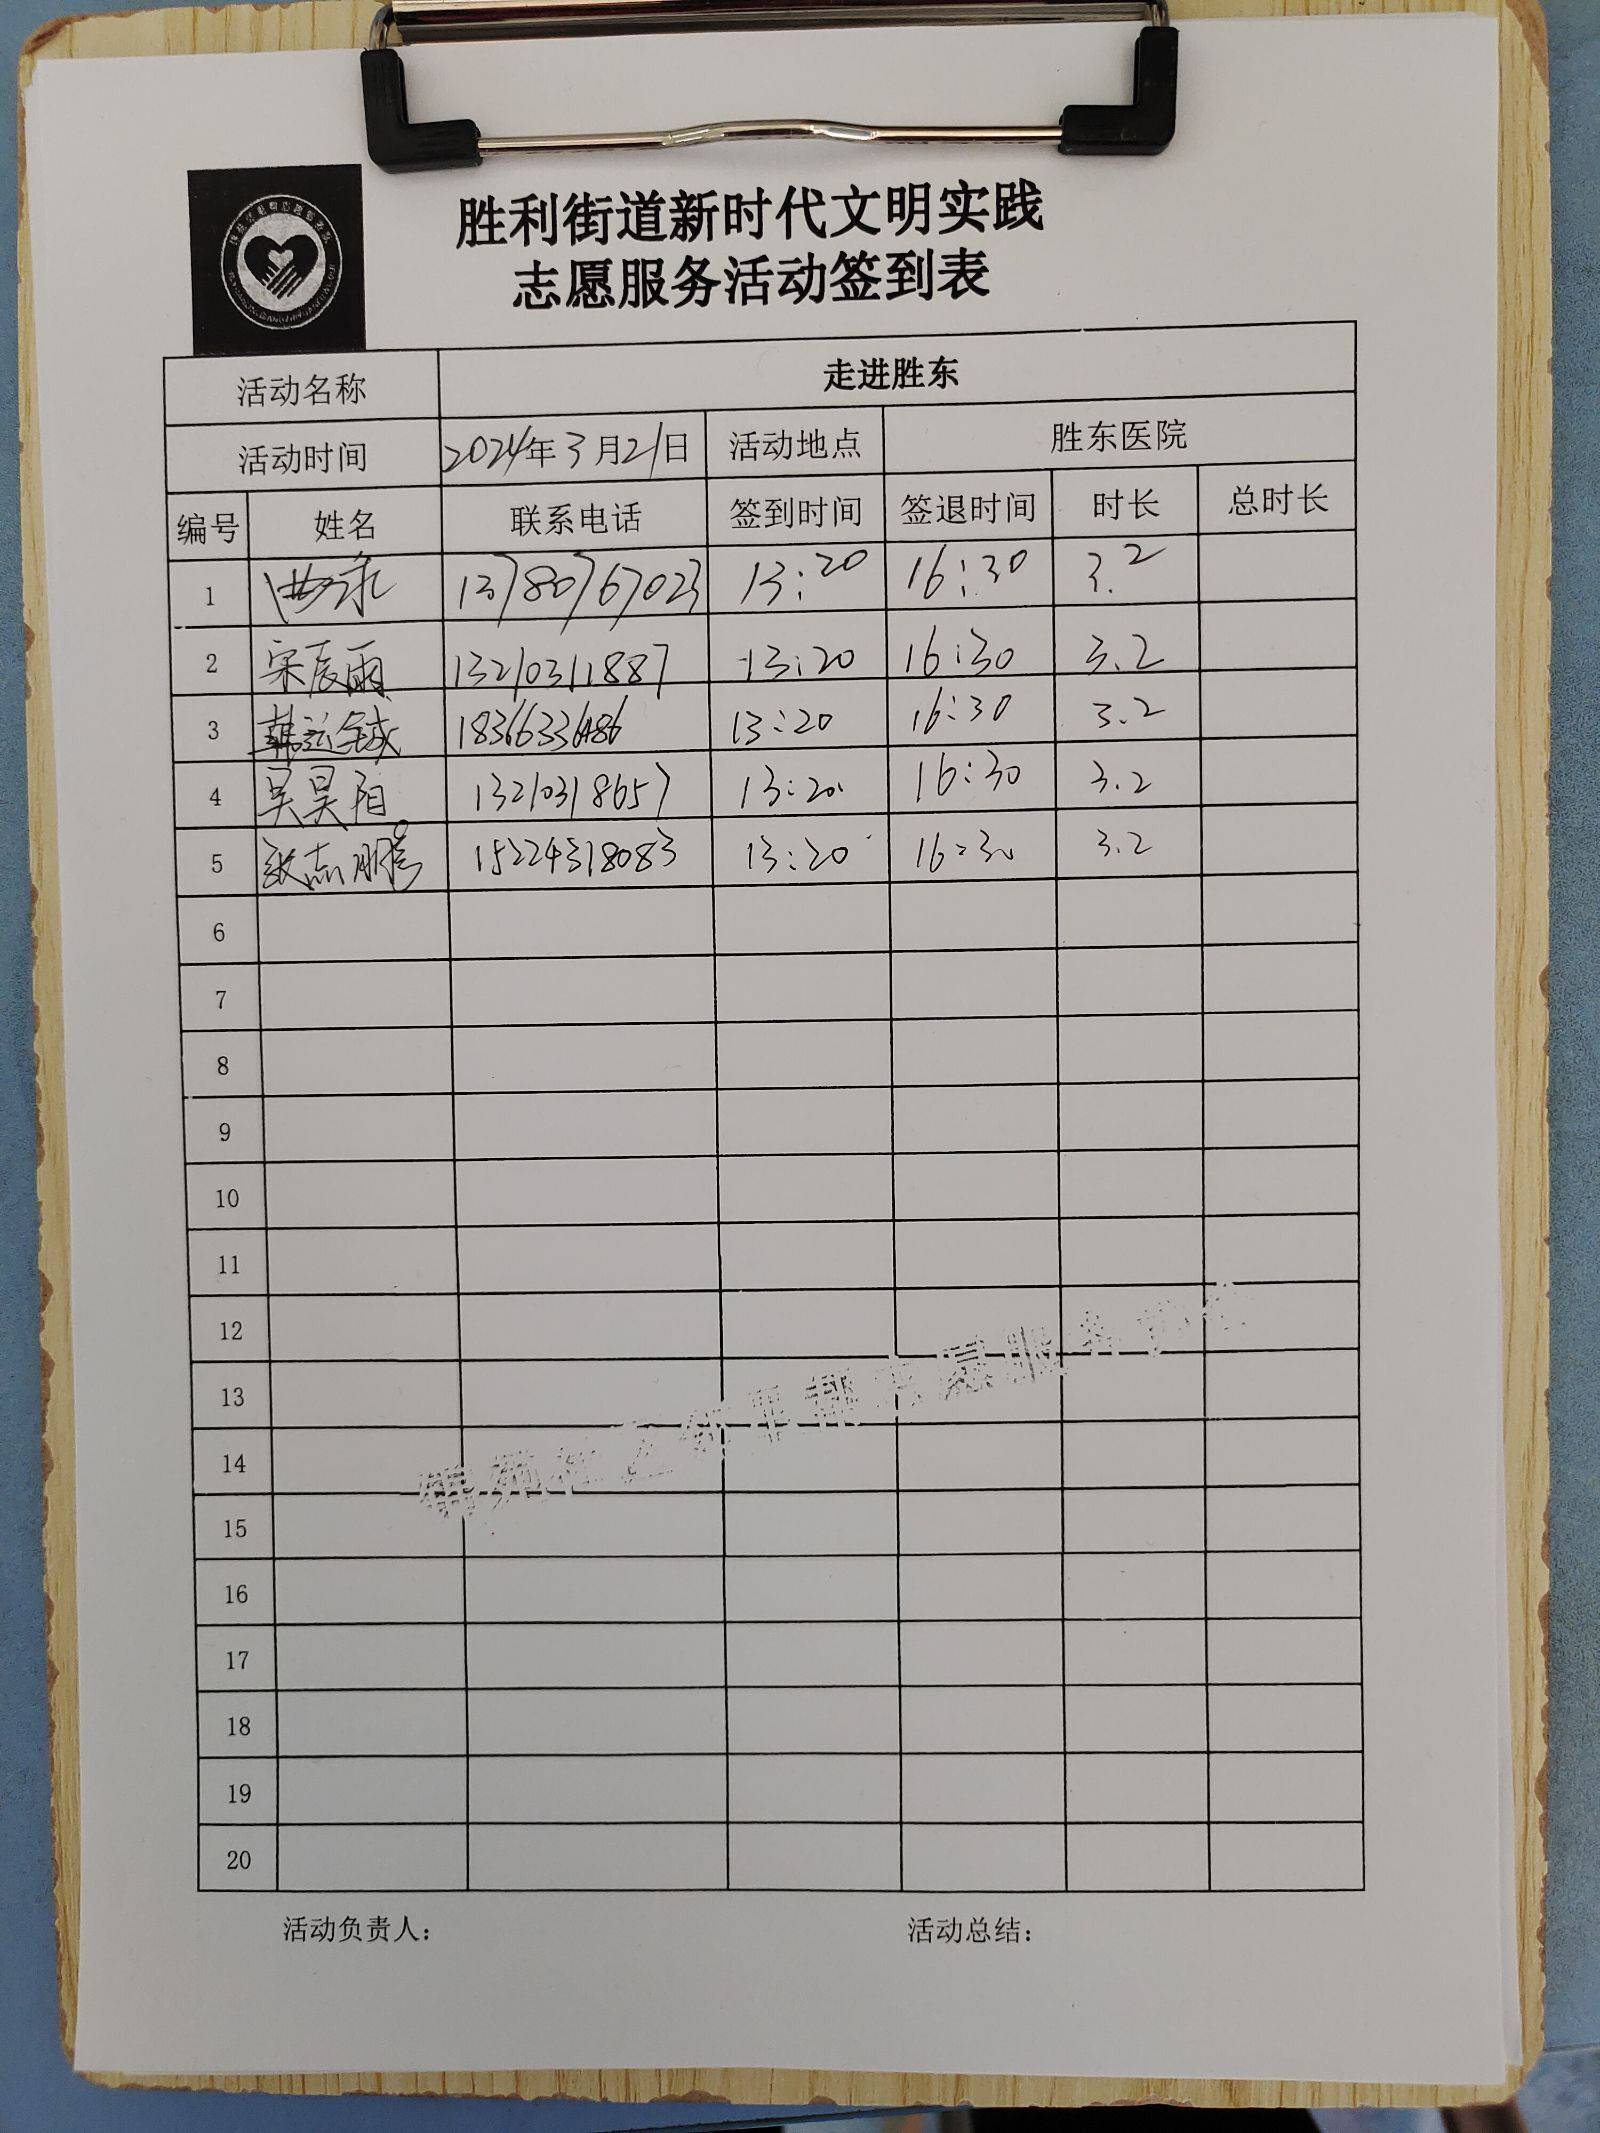 胜利街道新时代文明实践
志愿服务活动签到表
活动名称 走进胜东
活动时间 2024年3月21日 活动地点 胜东医院
编号 姓名 联系电话 签到时间 签退时间 时长 总时长
1 13780767023 13:20 16:30 3.2
2 宋辰雨 13210311887 13:20 16:30 3.2
3 18366336486 13:20 16:30 3.2
4 吴昊阳 13210318657 13:20 16:30 3.2
5 张志鹏 15224318083 13:20 16:30 3.2
6
7
8
9
10
11
12
13
14
15
16
17
18
19
20
活动负责人： 活动总结：